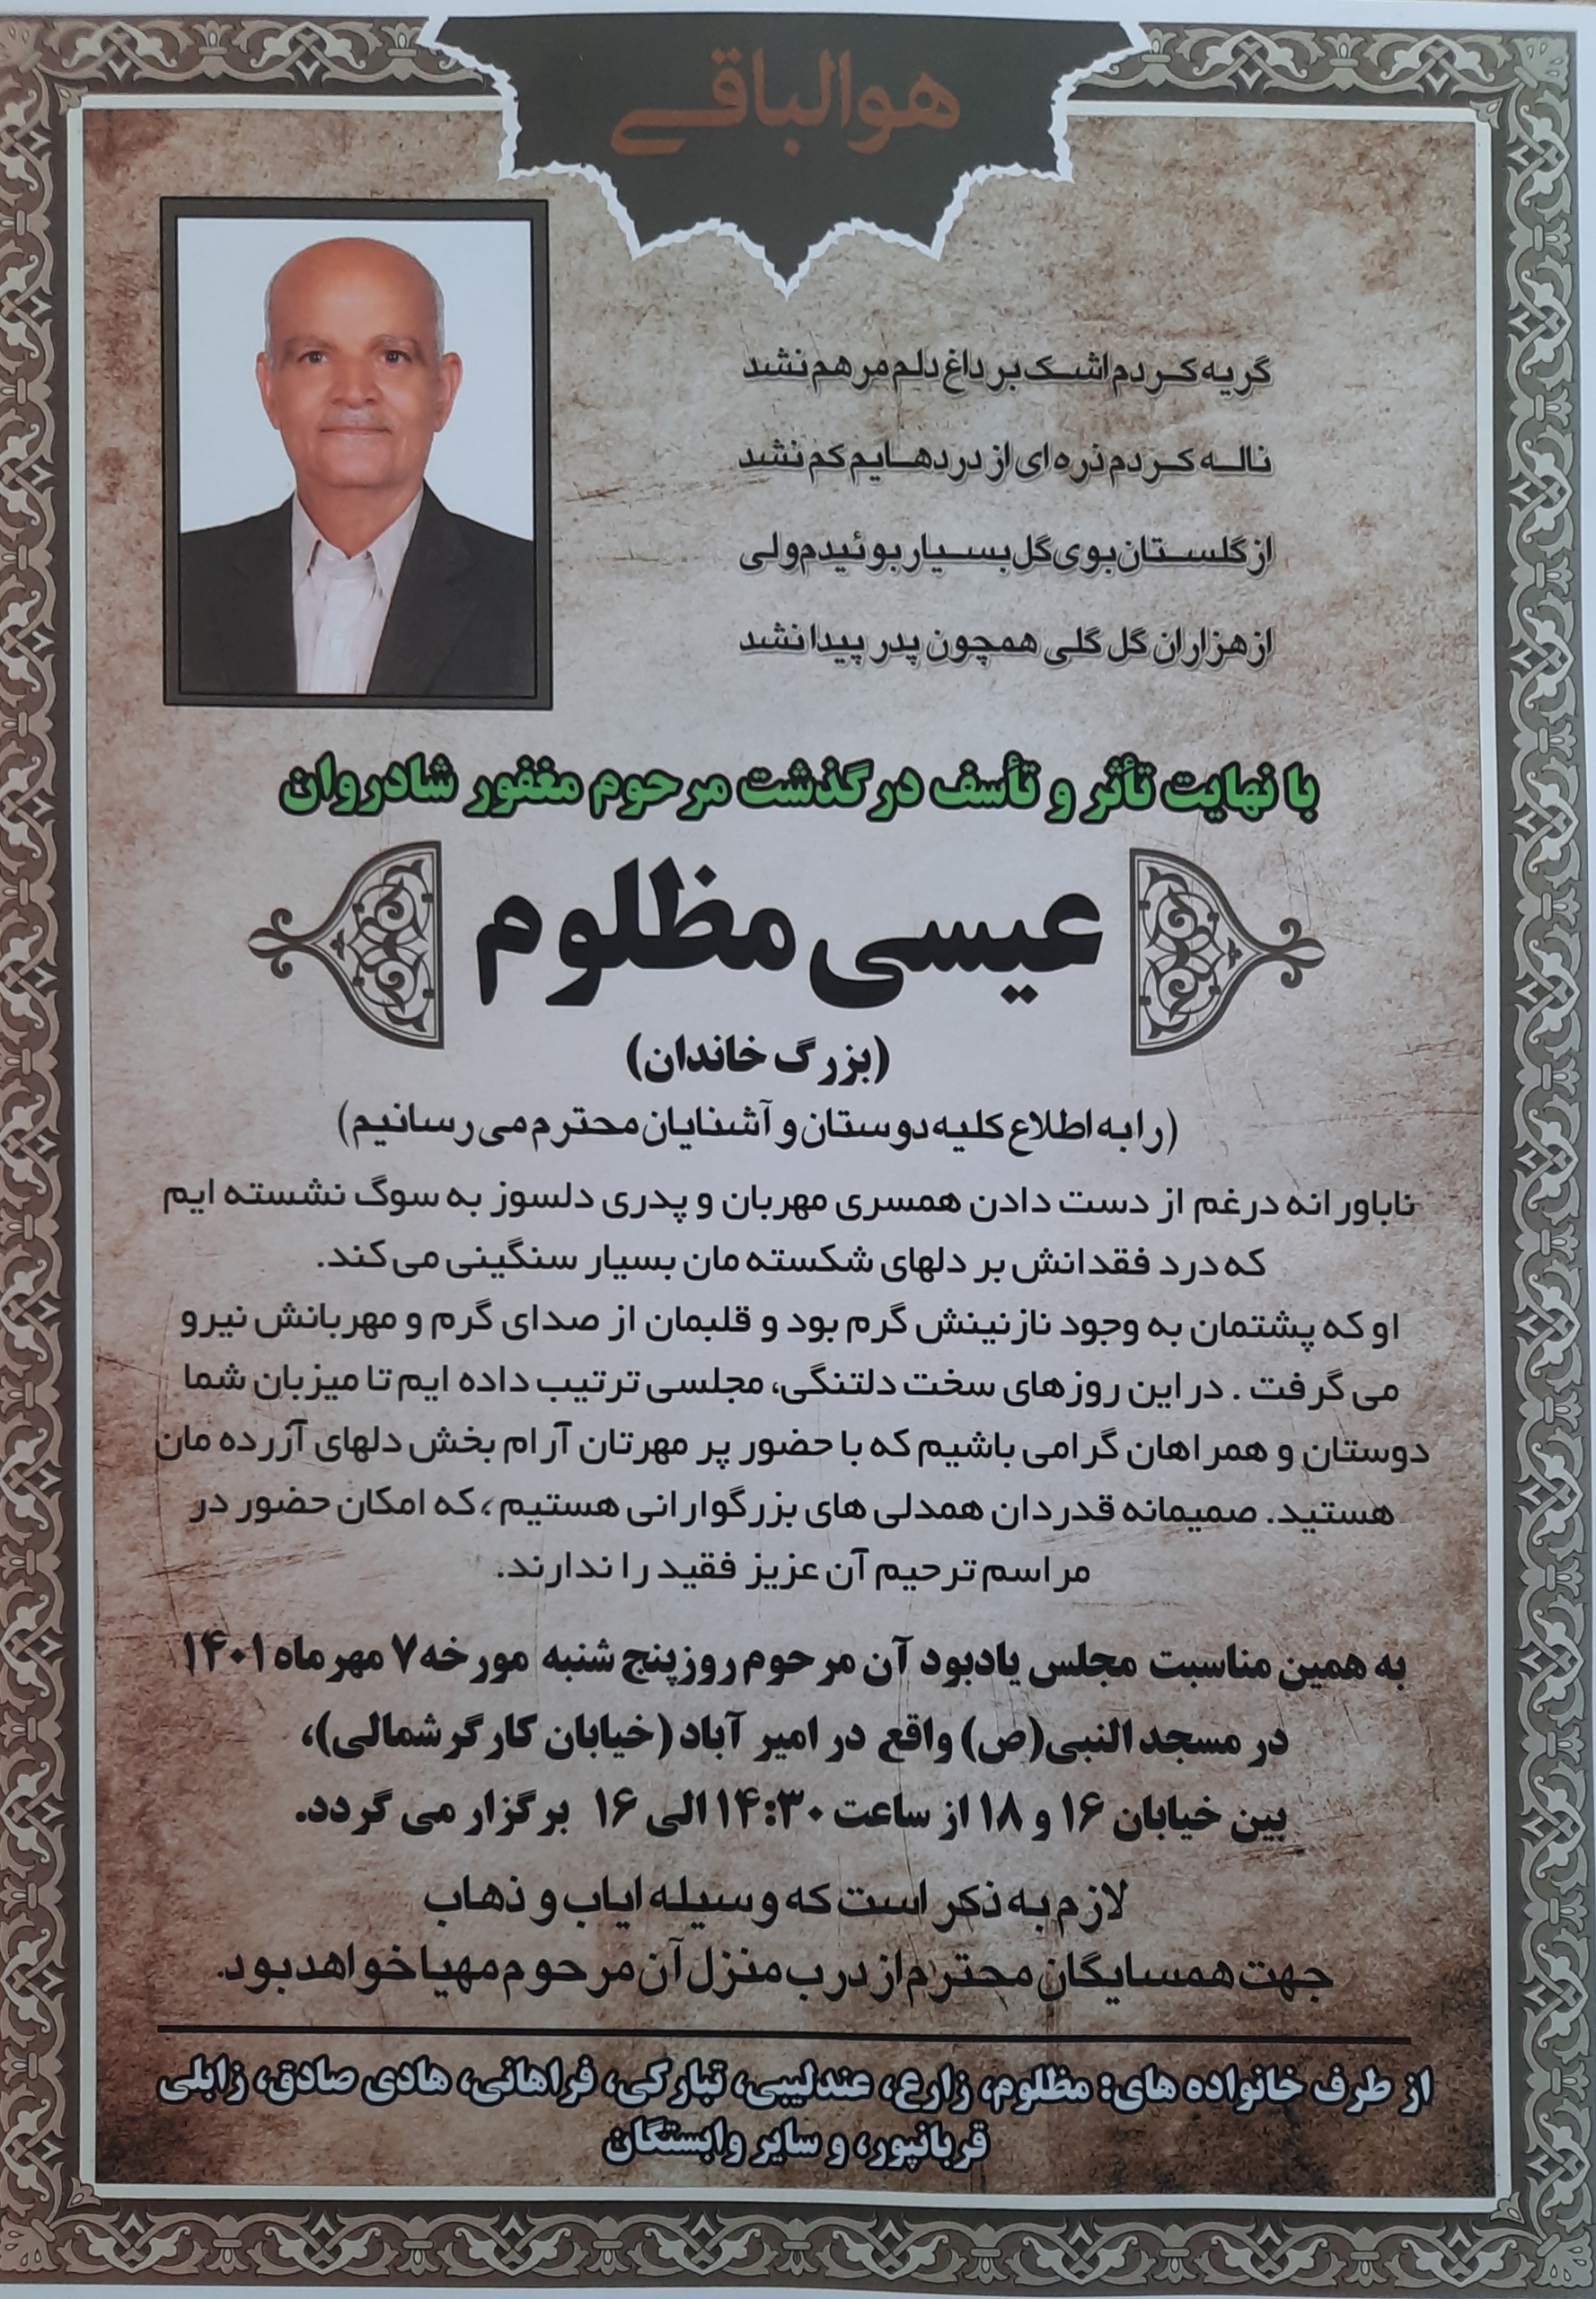 هوالباقی
گریه کردم اشک بر داغ دلم مرهم نشد
ناله کردم ذره ای از دردهایم کم نشد
از گلستان بوی گل بسیار بوئیدم ولی
از هزاران گل گلی همچون پدر پیدا نشد
با نهایت تأثر و تأسف درگذشت مرحوم مغفور شادروان
عیسی مظلوم
(بزرگ خاندان)
(را به اطلاع کلیه دوستان و آشنایان محترم می رسانیم)
ناباورانه درغم از دست دادن همسری مهربان و پدری دلسوز به سوگ نشسته ایم
که درد فقدانش بر دلهای شکسته مان بسیار سنگینی می کند.
او که پشتمان به وجود نازنینش گرم بود و قلبمان از صدای گرم و مهربانش نیرو
می گرفت . در این روزهای سخت دلتنگی، مجلسی ترتیب داده ایم تا میزبان شما
دوستان و همراهان گرامی باشیم که با حضور پر مهرتان آرام بخش دلهای آزرده مان
هستید. صمیمانه قدردان همدلی های بزرگوارانی هستیم ، که امکان حضور در
مراسم ترحیم آن عزیز فقید را ندارند.
به همین مناسبت مجلس یادبود آن مرحوم روز پنج شنبه مورخه ۷ مهر ماه ۱۴۰۱
در مسجد النبی (ص) واقع در امیر آباد (خیابان کارگر شمالی)،
بین خیابان ۱۶ و ۱۸ از ساعت ۱۴:۳۰ الی ۱۶ برگزار می گردد.
لازم به ذکر است که وسیله ایاب و ذهاب
جهت همسایگان محترم از درب منزل آن مرحوم مهیا خواهد بود.
از طرف خانواده های: مظلوم، زارع، عندلیبی، تبارکی، فراهانی، هادی صادق، زابلی
قربانپور، و سایر وابستگان